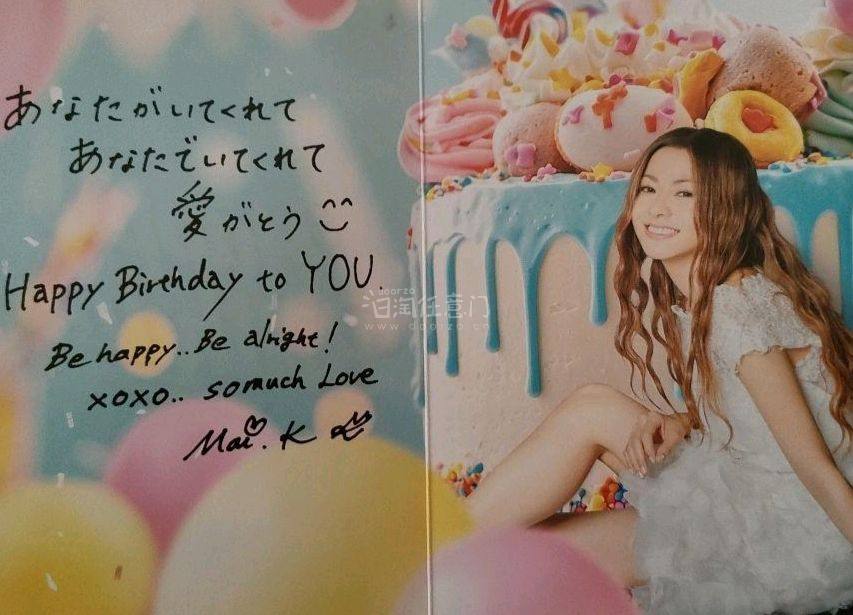 あなたがいてくれて
あなたでいてくれて
愛がとう
Happy Birthday to YOU.
Be happy.. Be alright!
xoxo.. so much Love
Mai.K
doorzo
汩淘任意门
www.doorzo.cn